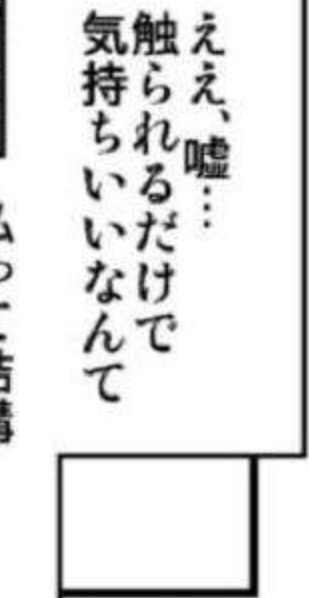 ええ、嘘…
触られるだけで
気持ちいいなんて